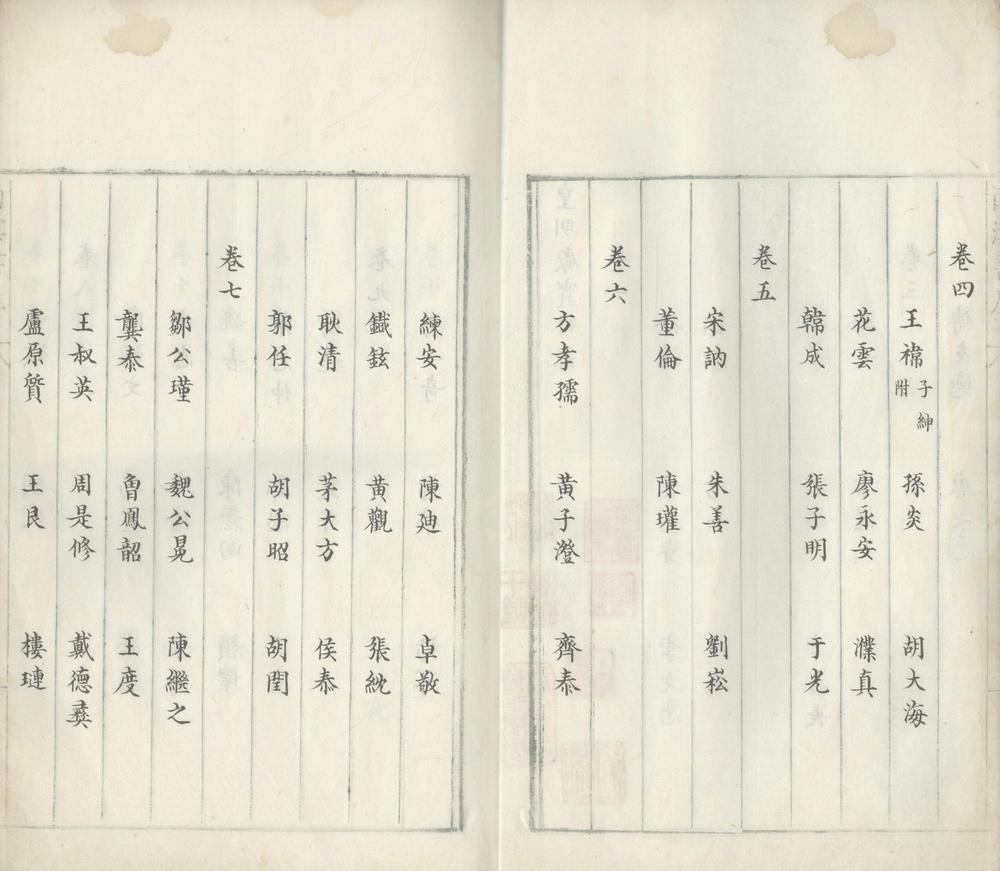 卷四
王褘 子紳附 孫炎 胡大海
花雲 廖永安 濮真
韓成 張子明 于光
卷五
宋訥 朱善 劉崧
董倫 陳瓘
卷六
方孝孺 黃子澄 齊泰
練安 陳廸 卓敬
鐵鉉 黃觀 張紞
耿清 茅大方 侯泰
郭任 胡子昭 胡閏
卷七
鄒公瑾 魏公冕 陳繼之
龔泰 魯鳳韶 王度
王叔英 周是修 戴德彞
盧原質 王艮 樓璉